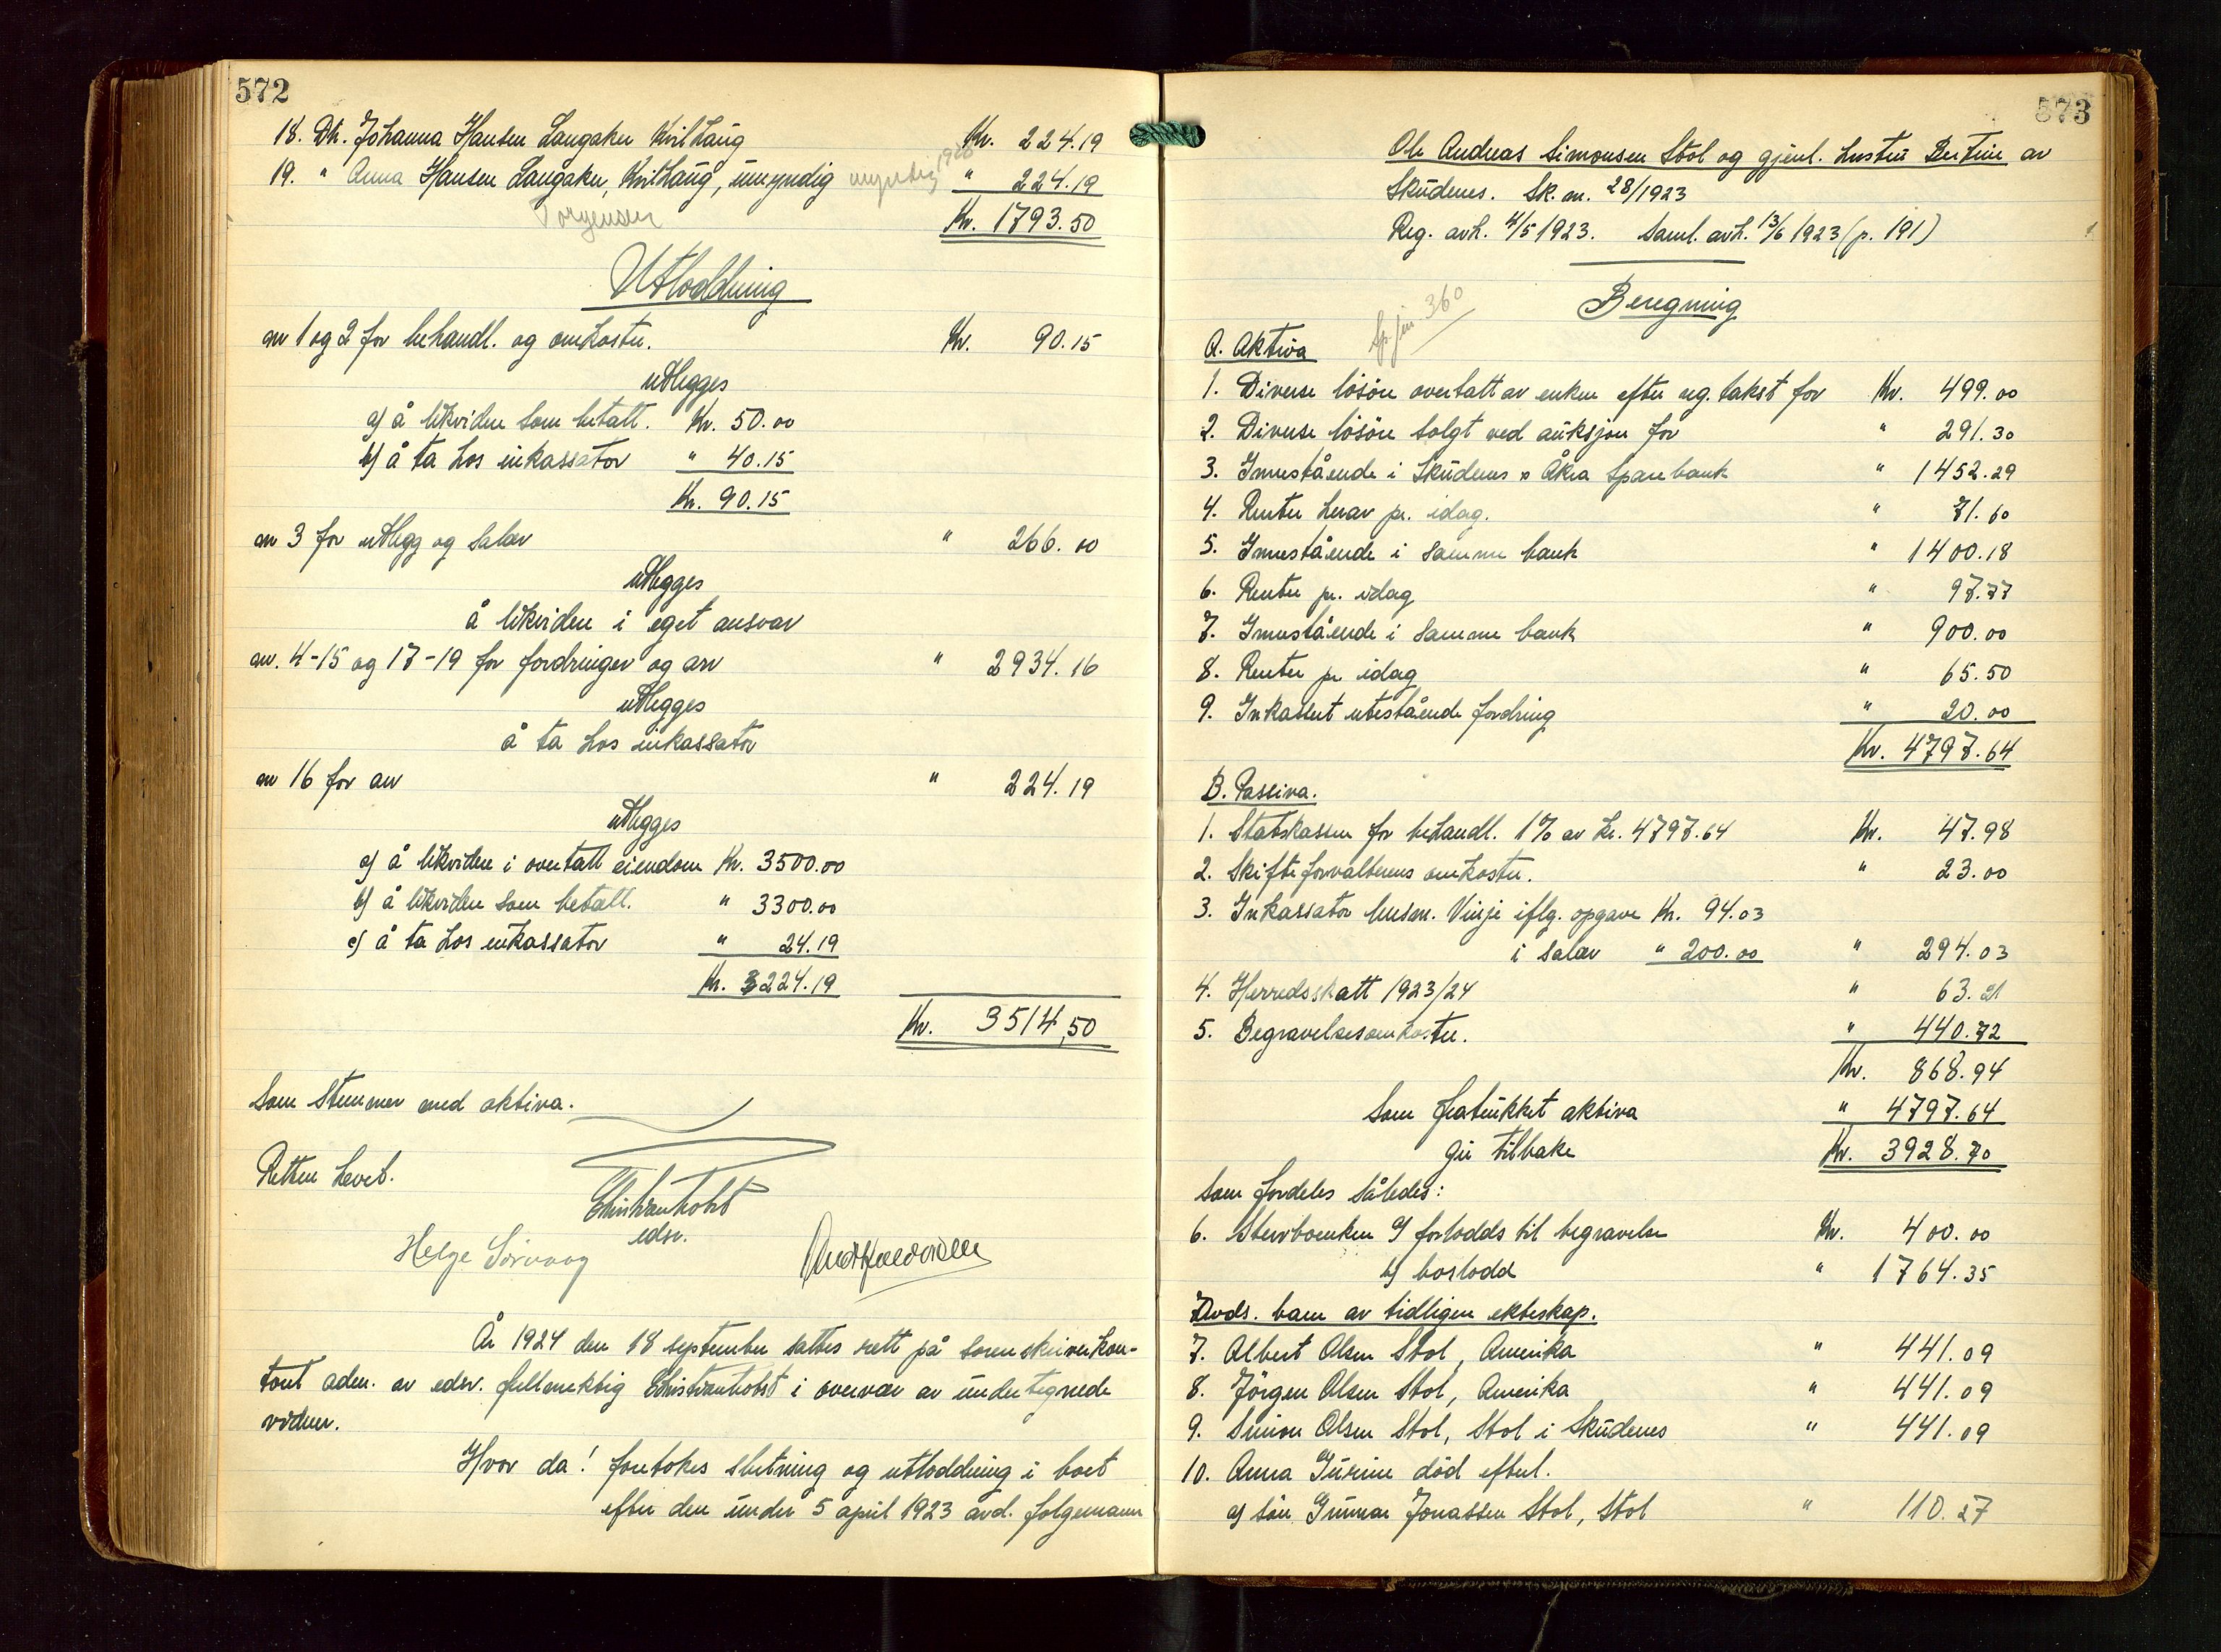 572
18. Dtr. Johanna Hansen Langaker Kvilhaug Kr. 224.19
19. " Anna Hansen Langaker, Kvilhaug, umyndig myndig 1926 " 224.19
Torgensen
Kr. 1793.50
Utlodding
nr 1 og 2 for behandl. og omkostn. Kr. 90.15
utlegges
a) å likviden som betalt. Kr. 50.00
b) å ta hos inkassator " 40.15
Kr. 90.15
nr 3 for utlegg og salær " 266.00
utlegges
å likviden i eget ansvar
nr. 4-15 og 17-19 for fordringer og arv " 2934.16
utlegges
å ta hos inkassator
nr 16 for arv " 224.19
utlegges
a) å likviden i overtatt eiendom Kr. 3500.00
b) å likviden som betalt. " 3300.00
c) å ta hos inkassator " 24.19
Kr. 3224.19
Kr. 3514,50
Som stemmer med aktiva.
Retten hevet.
Christian Holst
edsv.
Helge Sörvaag
År 1924 den 18 september sattes rett på sorenskriverkon-
toret adm. av edsv. fullmektig Christian Holst i overvær av undertegnede
vidner.
Hvor da! foretokes slutning og utlodding i boet
efter den under 5 april 1923 avd. folgemann
573
Ole Andreas Simonsen Stol og gjenl. hustru Bertine av
Skudenes. Sk. nr. 28/1923
Reg. avh. 4/5 1923. Saml. avh. 13/6 1923 (p. 191)
Beregning
360
A. Aktiva
1. Diverse lösöre overtatt av enken efter reg. takst for Kr. 499.00
2. Diverse lösöre solgt ved auksjon for " 291.30
3. Innestående i Skudenes & Åkra Sparebank " 1452.29
4. Renter herav pr. idag. " 71.60
5. Innestående i samme bank " 1400.18
6. Renter pr. idag " 97.77
7. Innestående i samme bank " 900.00
8. Renter pr idag " 65.50
9. Inkassert utestående fordring " 20.00
Kr. 4797.64
B. Passiva.
1. Statskassen for behandl. 1% av kr. 4797.64 Kr. 47.98
2. Skifteforvalterens omkostn. " 23.00
3. Inkassator lensm. Vinje iflg. opgave Kr. 94.03
i salær " 200.00 " 294.03
4. Herredsskatt 1923/24 " 63.21
5. Begravelsesomkostn. " 440.72
Kr. 868.94
Som fratrukket aktiva " 4797.64
gir tilbake Kr. 3928.70
som fordeles således:
6. Stervboenken a) forlodds til begravelse Kr. 400.00
b) boslodd " 1764.35
Avds. barn av tidligere ekteskap.
7. Albert Olsen Stol, Amerika " 441.09
8. Jörgen Olsen Stol, Amerika " 441.09
9. Simon Olsen Stol, Stol i Skudenes " 441.09
10. Anna Gurine död efterl.
a) sön Gunnar Jonassen Stol, Stol " 110.27